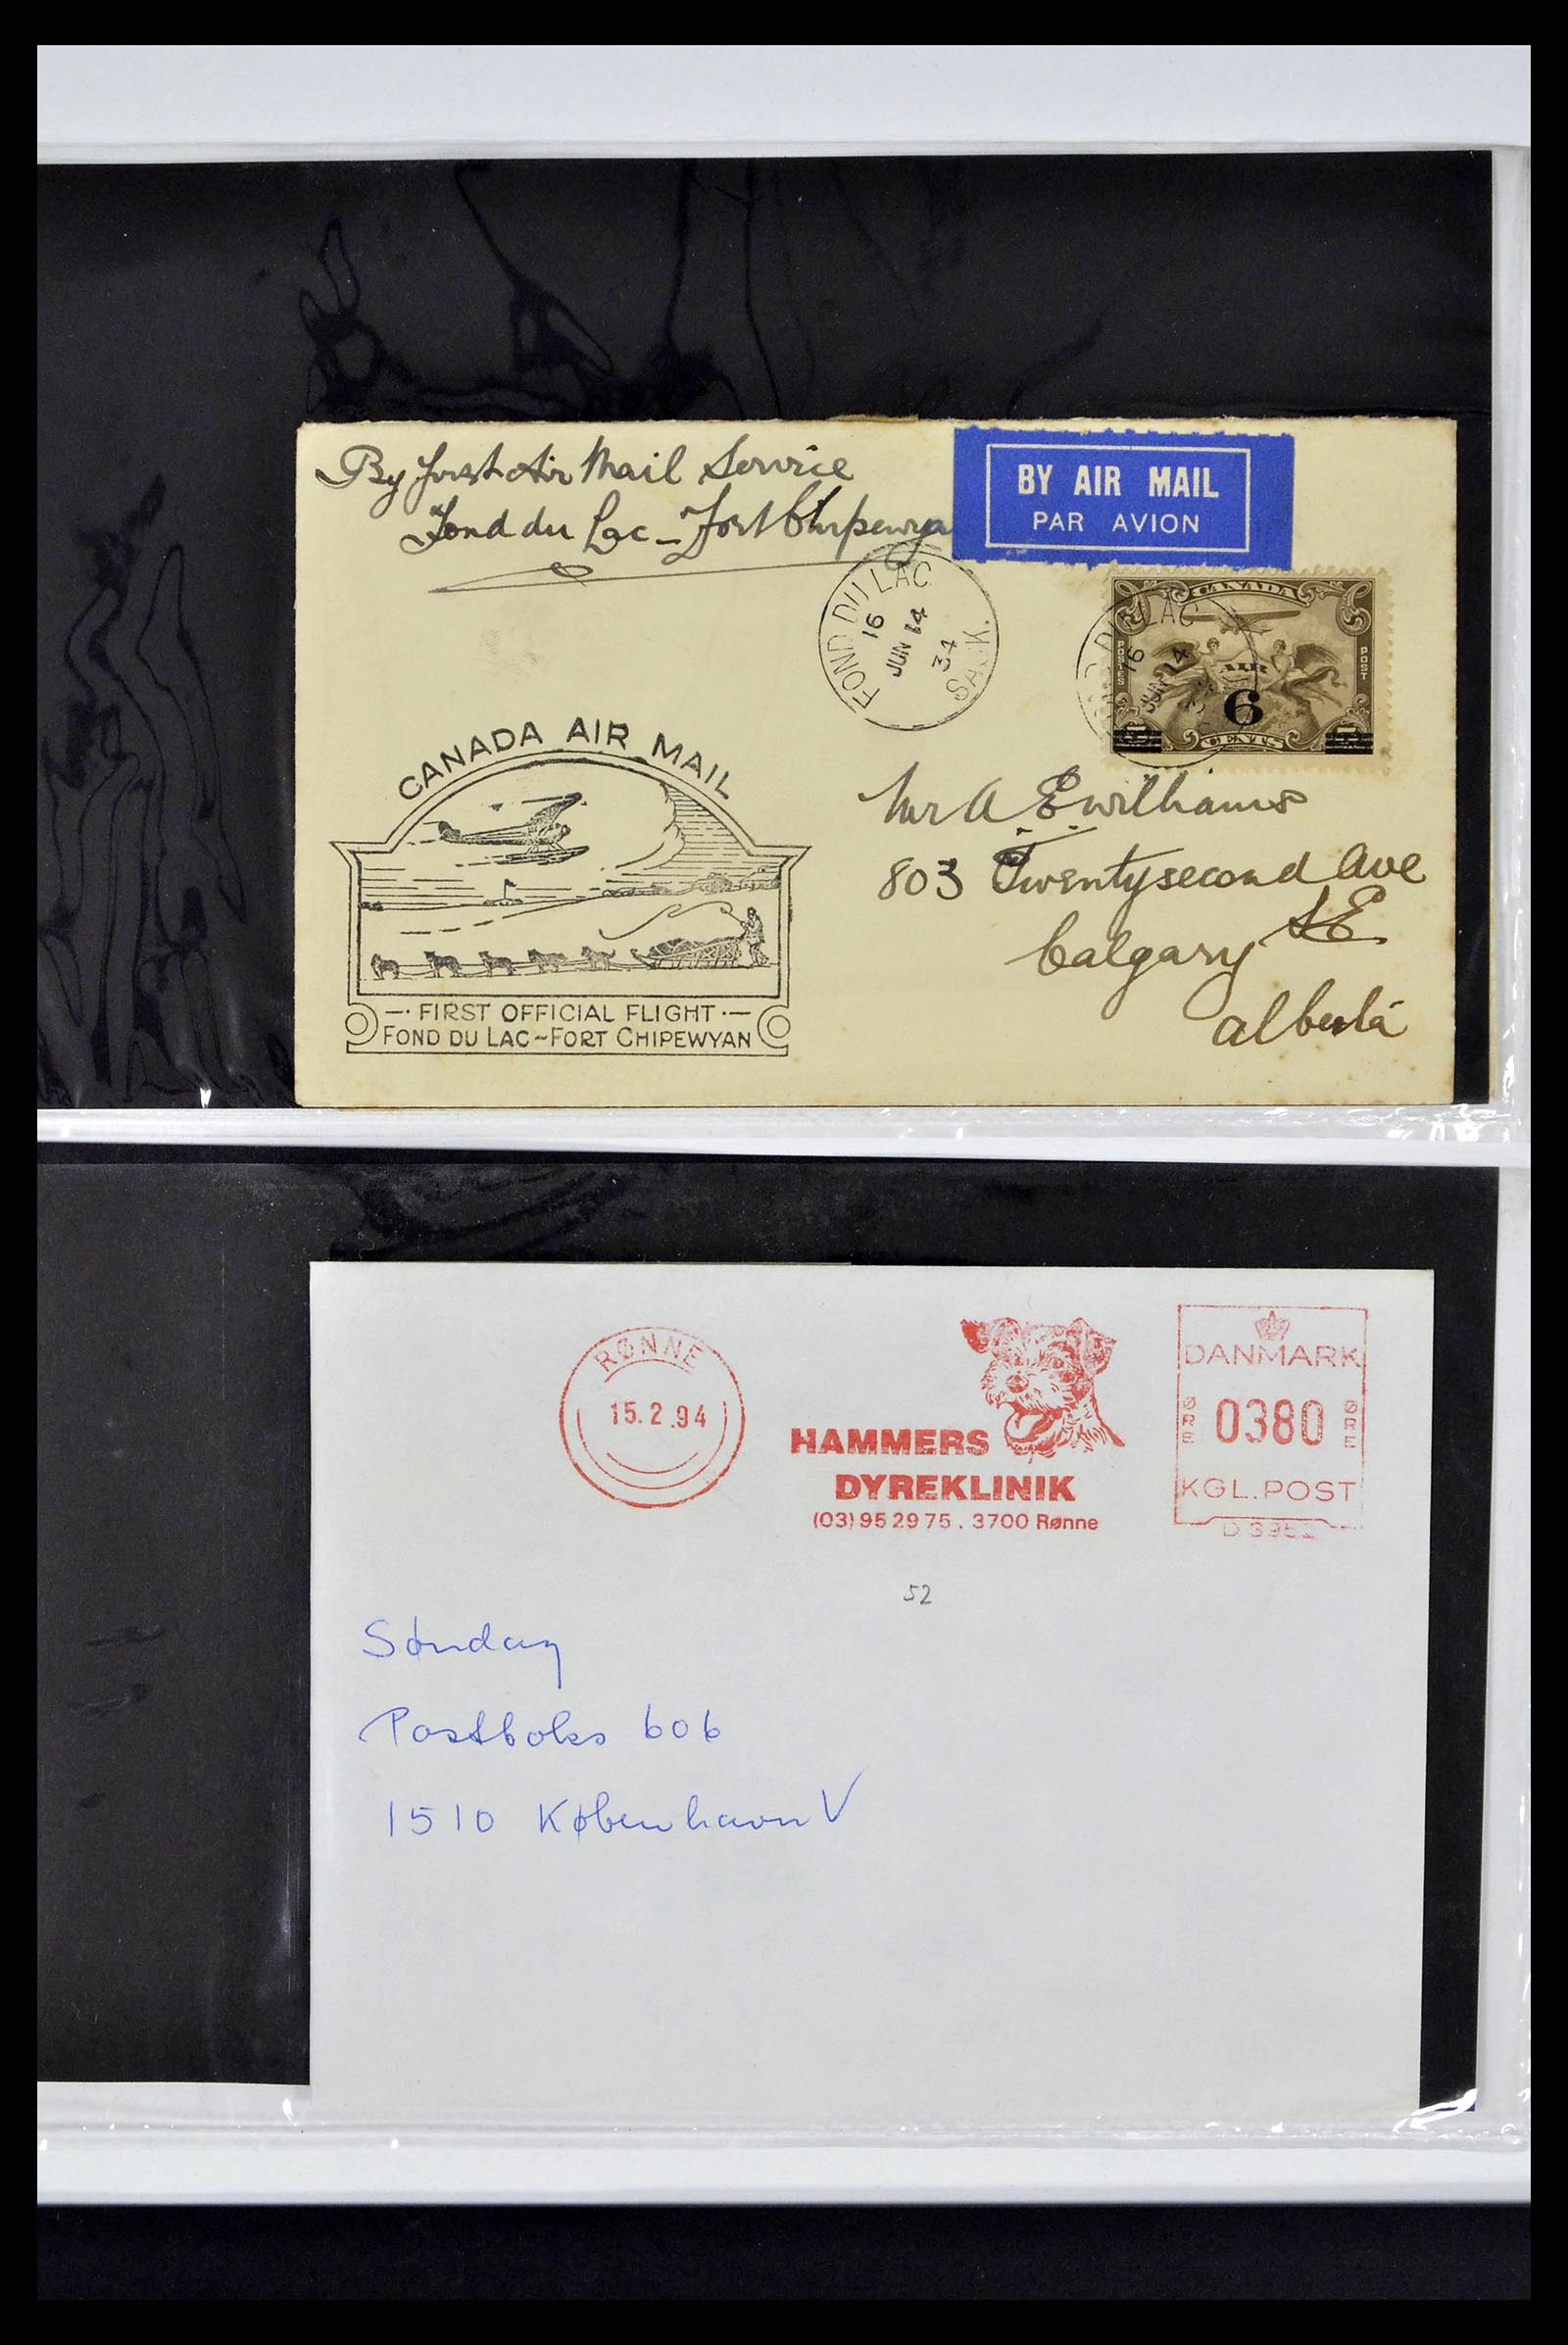 By first Air Mail Service
Fond du Lac - Fort Chipewyan
BY AIR MAIL
PAR AVION
FOND DU LAC
16
JUN 14
34
SASK.
DU LAC
16
JUN 14
CANADA
POSTES
POST
AIR
6
CENTS
CANADA AIR MAIL
—· FIRST OFFICIAL FLIGHT ·—
FOND DU LAC~FORT CHIPEWYAN
Mr A. E. Williams
803 Twentysecond Ave
S.E.
Calgary
Alberta
RØNNE
15.2.94
HAMMERS
DYREKLINIK
(03) 95 29 75 . 3700 Rønne
DANMARK
ØRE 0380 ØRE
KGL. POST
52
Søndag
Postboks 606
1510 København V